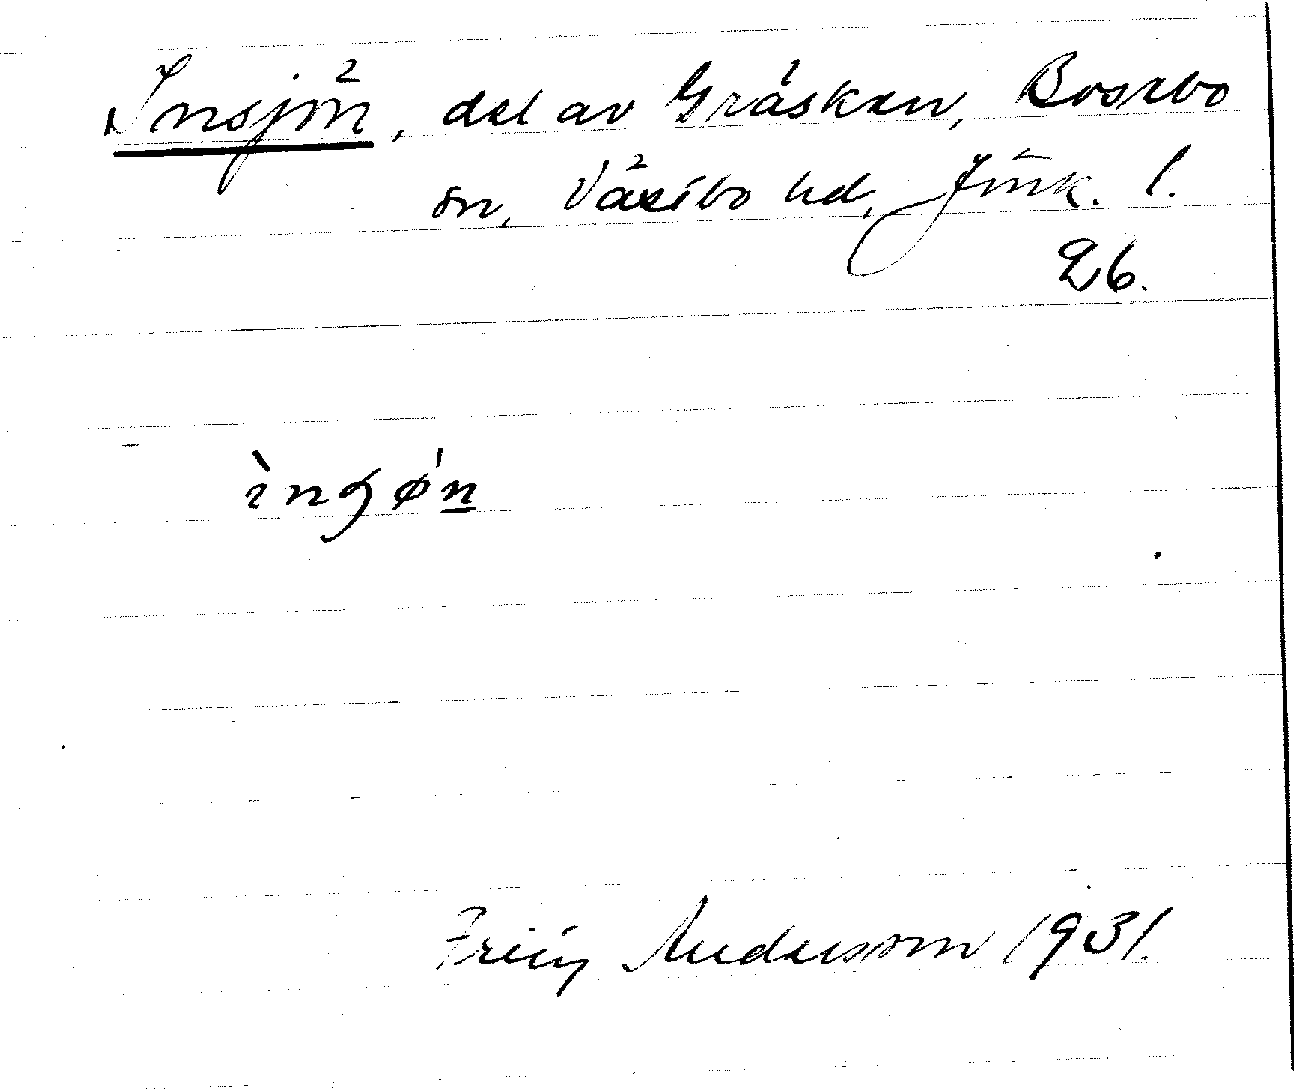 Insjön, del av Gråsken, Bosebo
sn, Västbo hd, Jönk. l.
26.
Andersson 1931.